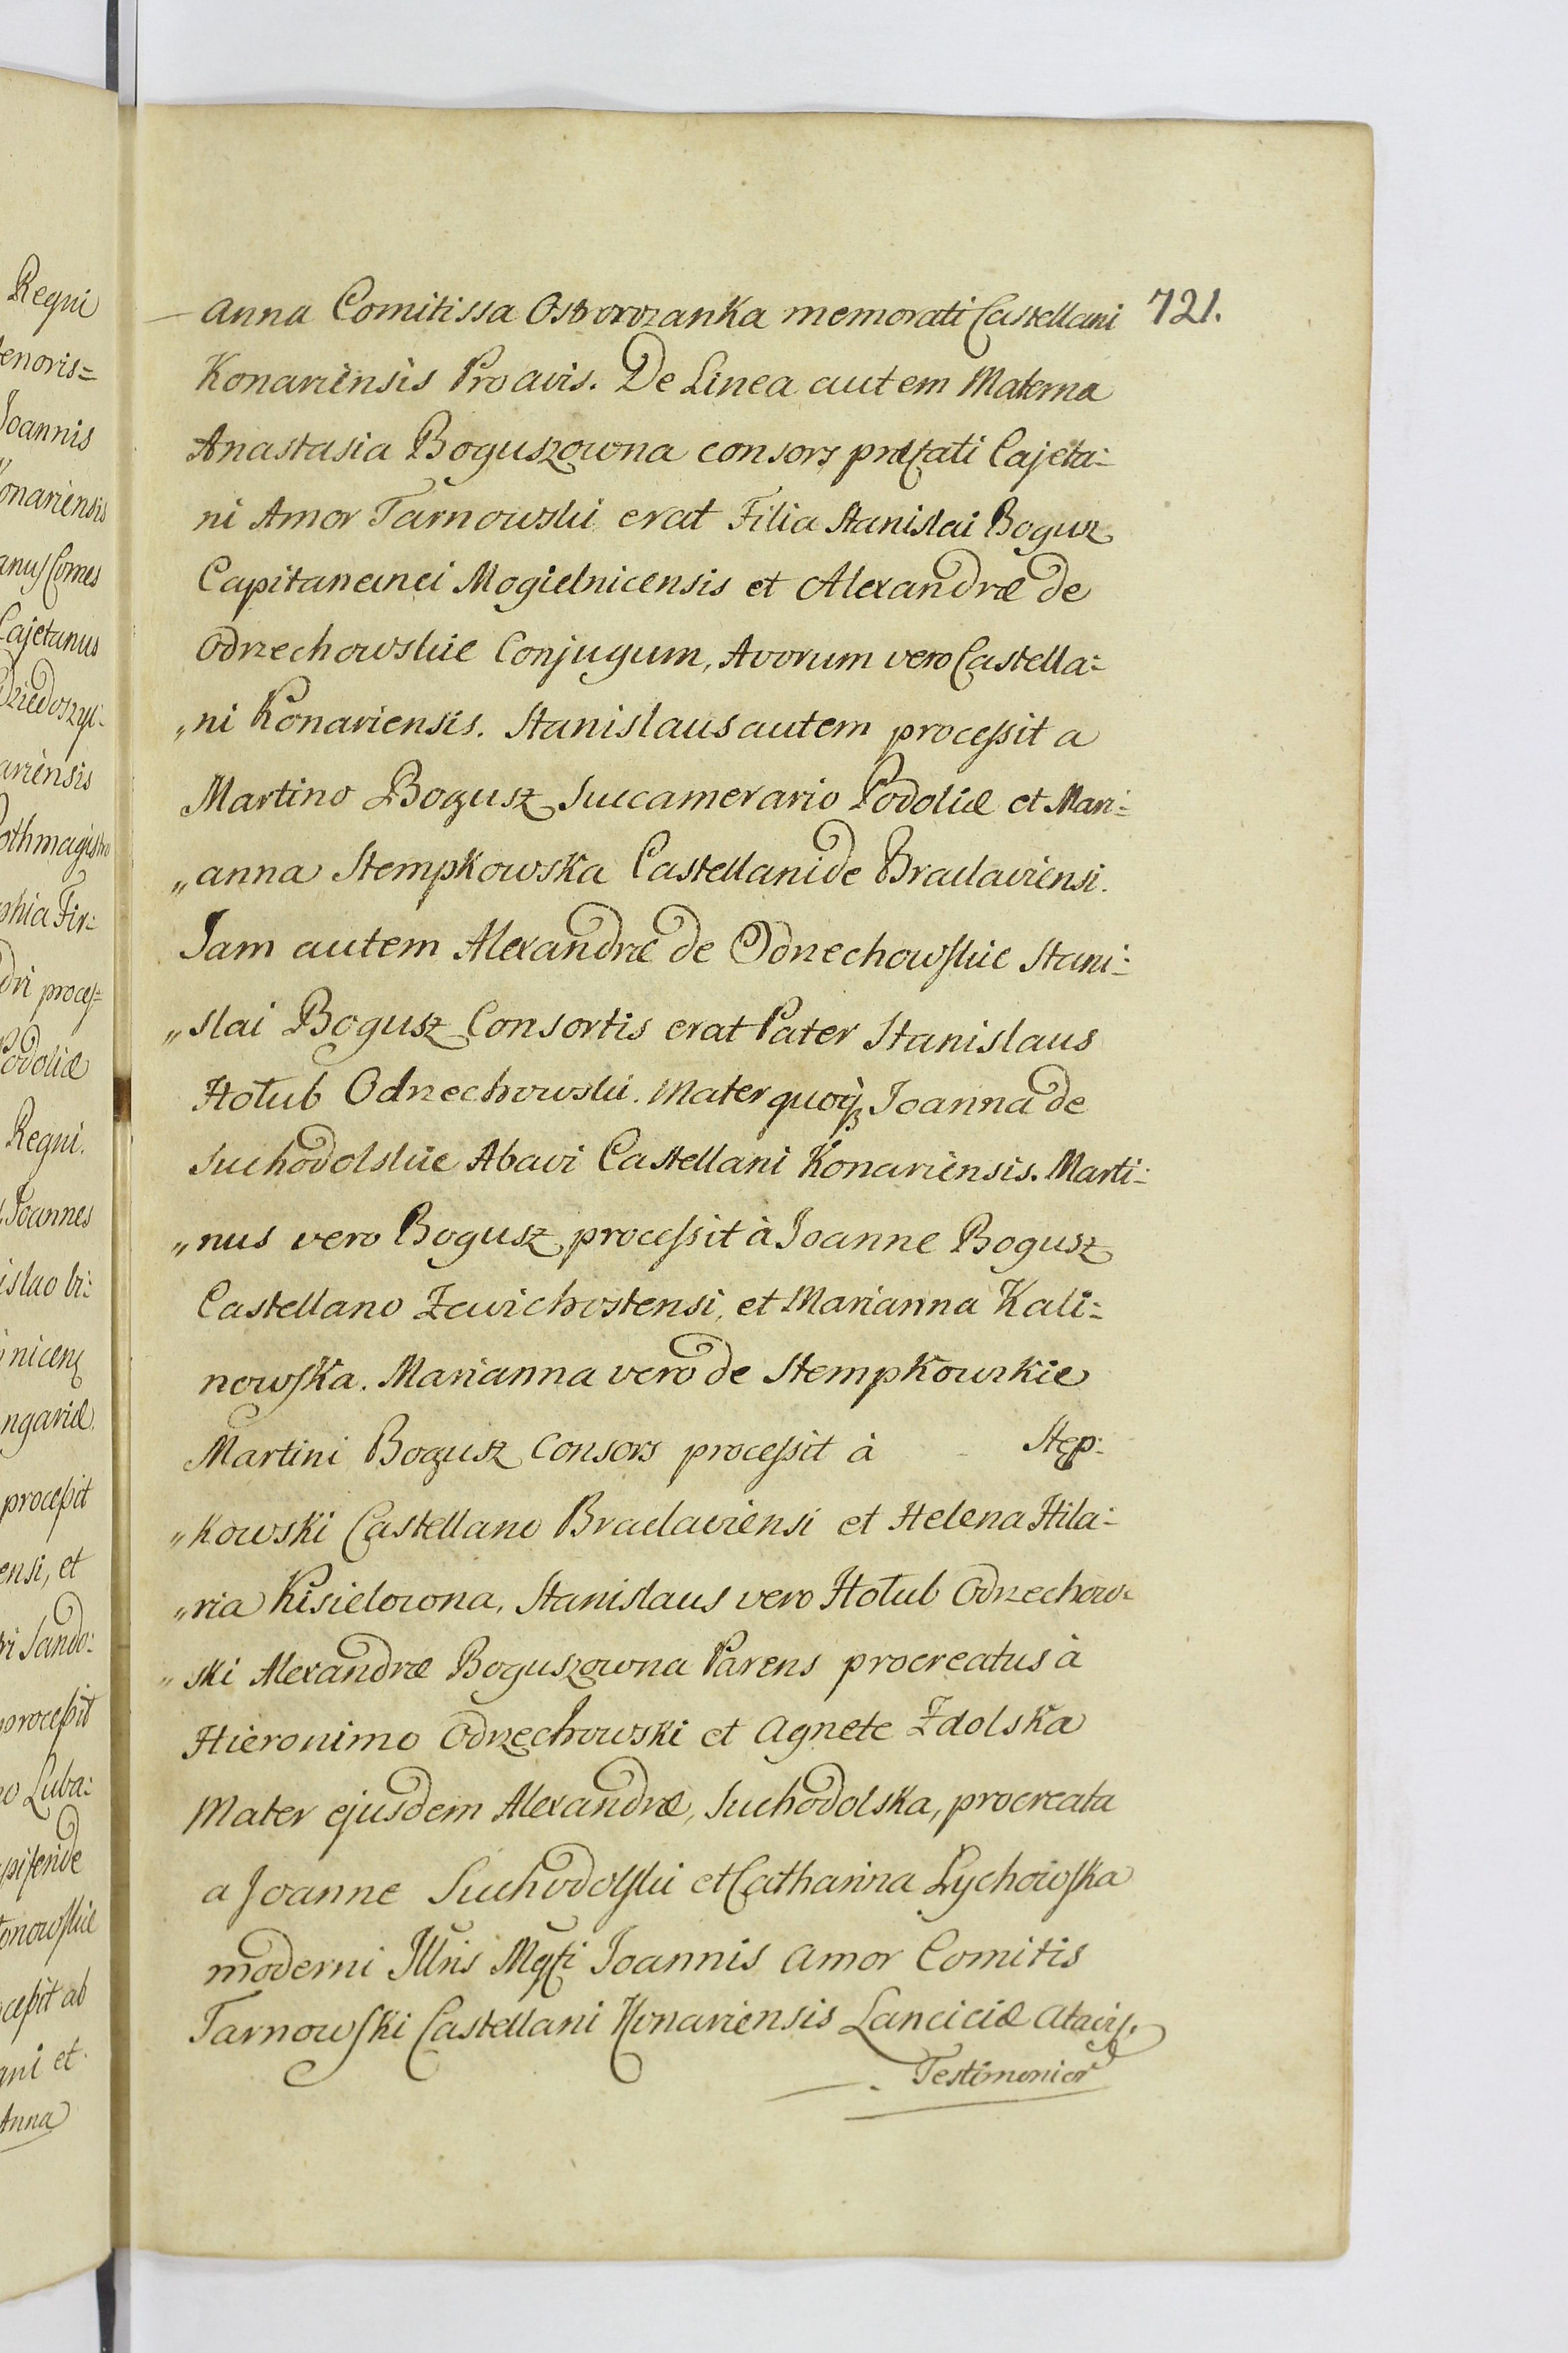 Regni
enoris=
Joannis
onariensis
anus Comes
Cajetanus
Dziedoszyc-
ariensis
othmagistro
phia Fir=
dri proceſ=
Podoliæ
Regni.
Joannes
islao
nicenſ
ngariæ.
proceſsit
ensi, et
ri Sando:
proceſsit
o Luba:
onowſkie
ceſsit ab
ani et
Anna
721.
Anna Comitissa Ostrorozanka memorati Castellani
Konariensis Proavis. De Linea autem Materna
Anastasia Boguszowna consors præfati Cajeta=
ni Amor Tarnowski erat Filia Stanislai Bogusz
Capitanei Mogielnicensis et Alexandræ de
Odrzechowskie Conjugum, Avorum vero Castella=
„ni Konariensis. Stanislaus autem proceſsit a
Martino Bogusz Succamerario Podoliæ et Mari=
„anna Stempkowska Castellanide Braclaviensi.
Jam autem Alexandræ de Odrzechowſkie Stani=
„slai Bogusz Consortis erat Pater Stanislaus
Hołub Odrzechowski. Mater quoqȝ Joanna de
Suchodolskie Abavi Castellani Konariensis. Marti=
„nus vero Bogusz proceſsit à Joanne Bogusz
Castellano Zawichostensi, et Marianna Kali=
nowſka. Marianna vero de Stempkowskie
Martini Bogusz Consors proceſsit à - Stęp:
„kowski Castellano Braclaviensi et Helena Hila=
„ria Kisielowna, Stanislaus vero Hołub Odrzechow=
„ski Alexandræ Boguszowna Parens procreatus à
Hieronimo Odrzechowski et Agnete Zdolska
Mater ejusdem Alexandræ, Suchodolska, procreata
a Joanne Suchodolſki et Catharina Lychowſka
moderni Illris Mgfi Joannis Amor Comitis
Tarnowſki Castellani Konariensis Lanciciæ Atavis.
Testimonior